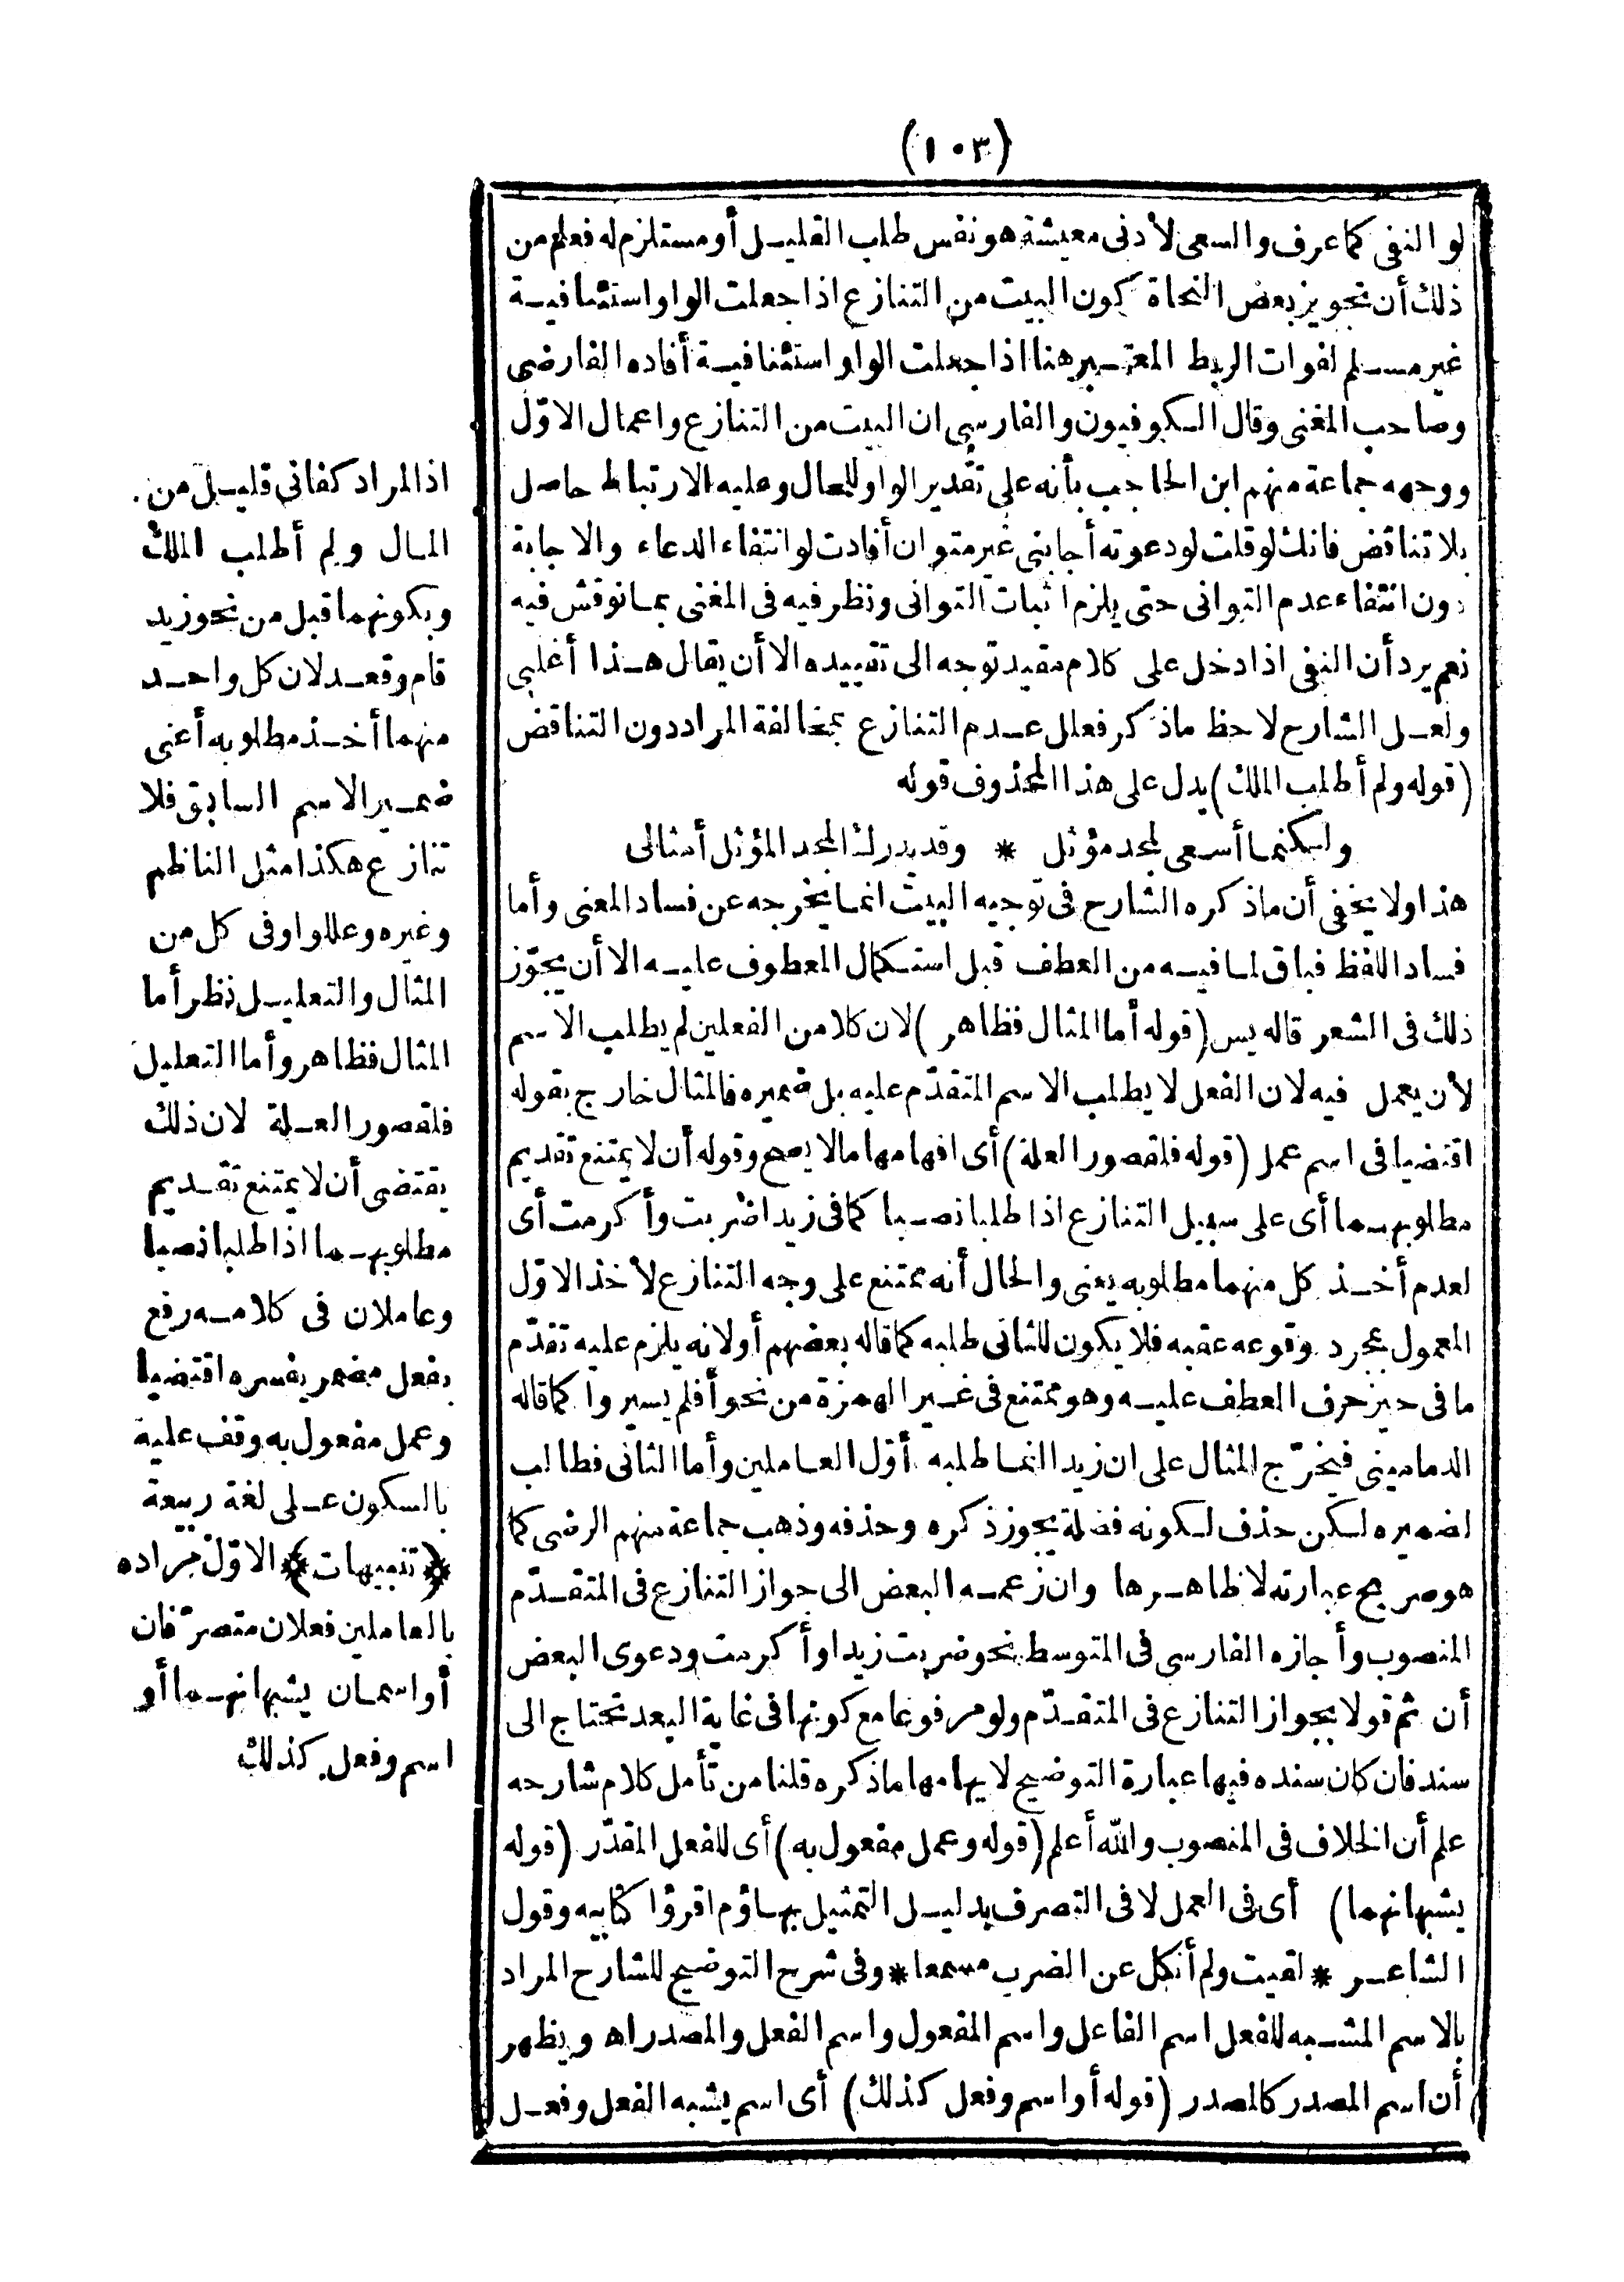 (١٠٣)
لو النفى كما عرف والسعى لأدنى معيشة هو نفس طلب القليل أو مستلزم له فعلم من
ذلك أن تجويز بعض النحاة كون البيت من التنازع اذا جعلت الواو استئنافية
غير مسلم لفوات الربط المعتبر هنا اذا جعلت الواو استئنافية أفاده الفارضى
وصاحب المغنى وقال الكوفيون والفارسى ان البيت من التنازع واعمال الاوّل
ووجهه جماعة منهم ابن الحاجب بأنه على تقدير الواو للحال وعليه الارتباط حاصل
بلا تناقض فانك لو قلت لو دعوته أجابنى غير متوان أفادت لو انتفاء الدعاء والاجابة
دون انتفاء عدم التوانى حتى يلزم اثبات التوانى ونظر فيه فى المغنى بما نوقش فيه
نعم يرد أن النفى اذا دخل على كلام مقيد توجه الى تقييده الا أن يقال هذا أغلبى
ولعل الشارح لاحظ ماذكر فعلل عدم التنازع بمخالفة المراد دون التناقض
(قوله ولم أطلب الملك) يدل على هذا المحذوف قوله
ولكنما أسعى لمجد مؤثل * وقد يدرك المجد المؤثل أمثالى
هذا ولا يخفى أن ماذكره الشارح فى توجيه البيت انما يخرجه عن فساد المعنى وأما
فساد اللفظ فباق لما فيه من العطف قبل استكمال المعطوف عليه الا أن يجوّز
ذلك فى الشعر قاله يس (قوله أما المثال فظاهر) لان كلا من الفعلين لم يطلب الاسم
لأن يعمل فيه لان الفعل لا يطلب الاسم المتقدّم عليه بل ضميره فالمثال خارج بقوله
اقتضيا فى اسم عمل (قوله فلقصور العلة) أى افهامها مالا يصح وقوله أن لا يمتنع تقديم
مطلوبهما أى على سبيل التنازع اذا طلبا نصبا كما فى زيدا ضربت وأكرمت أى
لعدم أخذ كل منهما مطلوبه يعنى والحال أنه ممتنع على وجه التنازع لأخذ الاوّل
المعمول بمجرد وقوعه عقبه فلا يكون للثانى طلبه كما قاله بعضهم أو لانه يلزم عليه تقدّم
ما فى حيز حرف العطف عليه وهو ممتنع فى غير الهمزة من نحو أفلم يسيروا كما قاله
الدمامينى فيخرّج المثال على ان زيدا انما طلبه أوّل العاملين وأما الثانى فطالب
لضميره لكن حذف لكونه فضلة يجوز ذكره وحذفه وذهب جماعة منهم الرضى كما
هو صريح عبارته لا ظاهرها وان زعمه البعض الى جواز التنازع فى المتقدّم
المنصوب وأجازه الفارسى فى المتوسط نحو ضربت زيدا وأكرمت ودعوى البعض
أن ثم قولا بجواز التنازع فى المتقدّم ولو مرفوعا مع كونها فى غاية البعد تحتاج الى
سند فان كان سنده فيها عبارة التوضيح لايهامها ماذكره قلنا من تأمل كلام شارحه
علم أن الخلاف فى المنصوب والله أعلم (قوله وعمل مفعول به) أى للفعل المقدّر (قوله
يشبهانهما) أى فى العمل لا فى التصرف بدليل التمثيل بهاؤم اقرؤا كتابيه وقول
الشاعر * لقيت ولم أنكل عن الضرب مسمعا * وفى شرح التوضيح للشارح المراد
بالاسم المشبه للفعل اسم الفاعل واسم المفعول واسم الفعل والمصدر اه ويظهر
أن اسم المصدر كالمصدر (قوله أو اسم وفعل كذلك) أى اسم يشبه الفعل وفعل
اذ المراد كفانى قليل من
المال ولم أطلب الملك
وبكونهما قبل من نحو زيد
قام وقعد لان كل واحد
منهما أخذ مطلوبه أعنى
ضمير الاسم السابق فلا
تنازع هكذا مثل الناظم
وغيره وعللوا وفى كل من
المثال والتعليل نظر أما
المثال فظاهر وأما التعليل
فلقصور العلة لان ذلك
يقتضى أن لا يمتنع تقديم
مطلوبهما اذا طلبا نصبا
وعاملان فى كلامه رفع
بفعل مضمر يفسره اقتضيا
وعمل مفعول به وقف عليه
بالسكون على لغة ربيعة
﴿تنبيهات﴾ الاوّل مراده
بالعاملين فعلان متصرّفان
أو اسمان يشبهانهما أو
اسم وفعل كذلك